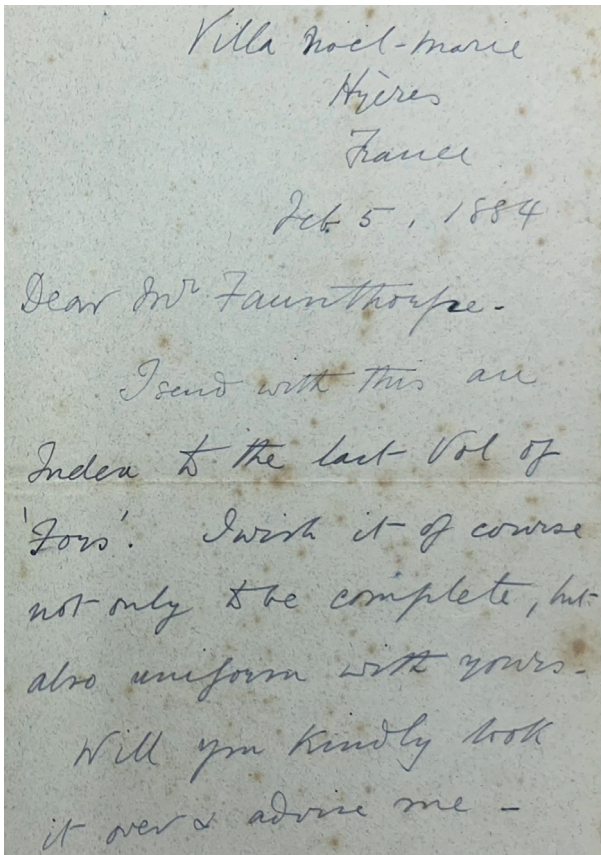 Villa Noël-Marie
Hyères
France
Feb. 5, 1884
Dear Mr Faunthorpe.
I send with this an
Index to the last Vol of
'Fors'. I wish it of course
not only to be complete, but
also uniform with yours.
Will you kindly look
it over & advise me -